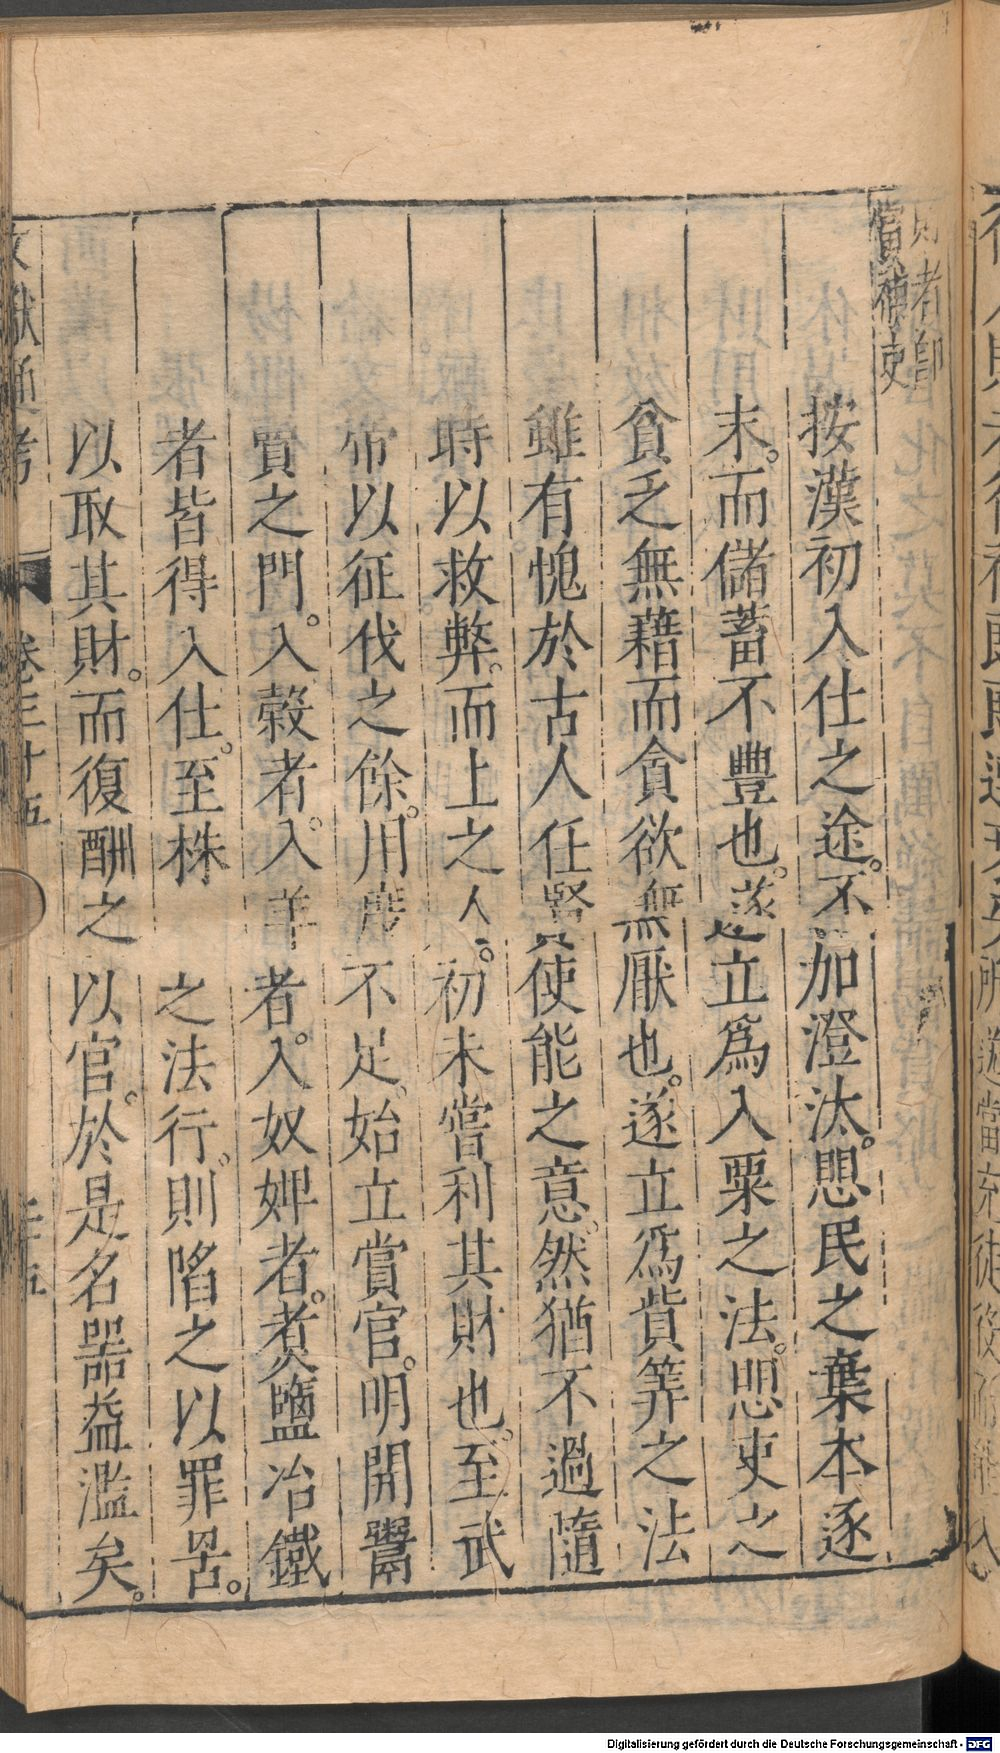 則者郎
賞補吏
按漢初入仕之途。不加澄汰。愳民之棄本逐
末。而儲蓄不豐也。遂立爲入粟之法。愳吏之
貧乏無藉而貪欲無厭也。遂立爲貲筭之法
雖有愧於古人任賢使能之意。然猶不過隨
時以救弊。而上之人。初未嘗利其財也。至武
帝以征伐之餘。用度不足。始立賞官。明開鬻
賣之門。入穀者。入羊者。入奴婢者。煑鹽冶鐵
者皆得入仕。至株之法行。則陷之以罪罟。
以取其財。而復酬之以官。於是名噐益濫矣。
文獻通考 卷三十五 三十五
Digitalisierung gefördert durch die Deutsche Forschungsgemeinschaft - DFG